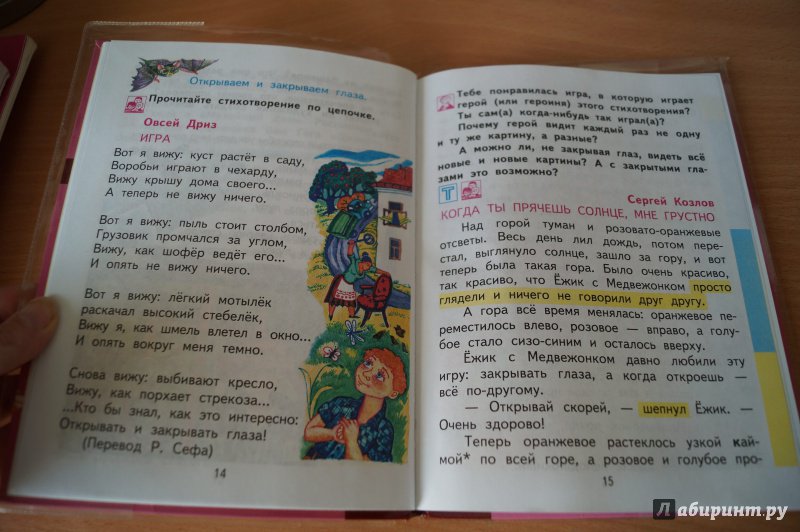 Открываем и закрываем глаза.
Прочитайте стихотворение по цепочке.
Овсей Дриз
ИГРА
Вот я вижу: куст растёт в саду,
Воробьи играют в чехарду,
Вижу крышу дома своего...
А теперь не вижу ничего.
Вот я вижу: пыль стоит столбом,
Грузовик промчался за углом,
Вижу, как шофёр ведёт его...
И опять не вижу ничего.
Вот я вижу: лёгкий мотылёк
раскачал высокий стебелёк,
Вижу я, как шмель влетел в окно...
И опять вокруг меня темно.
Снова вижу: выбивают кресло,
Вижу, как порхает стрекоза...
...Кто бы знал, как это интересно:
Открывать и закрывать глаза!
(Перевод Р. Сефа)
14
Тебе понравилась игра, в которую играет
герой (или героиня) этого стихотворения?
Ты сам(а) когда-нибудь так играл(а)?
Почему герой видит каждый раз не одну
и ту же картину, а разные?
А можно ли, не закрывая глаз, видеть всё
новые и новые картины? А с закрытыми гла-
зами это возможно?
Т
Сергей Козлов
КОГДА ТЫ ПРЯЧЕШЬ СОЛНЦЕ, МНЕ ГРУСТНО
Над горой туман и розовато-оранжевые
отсветы. Весь день лил дождь, потом пере-
стал, выглянуло солнце, зашло за гору, и вот
теперь была такая гора. Было очень красиво,
так красиво, что Ёжик с Медвежонком просто
глядели и ничего не говорили друг другу.
А гора всё время менялась: оранжевое пе-
реместилось влево, розовое — вправо, а голу-
бое стало сизо-синим и осталось вверху.
Ёжик с Медвежонком давно любили эту
игру: закрывать глаза, а когда откроешь —
всё по-другому.
— Открывай скорей, — шепнул Ёжик. —
Очень здорово!
Теперь оранжевое растеклось узкой кай-
мой* по всей горе, а розовое и голубое про-
15
Лабиринт.ру